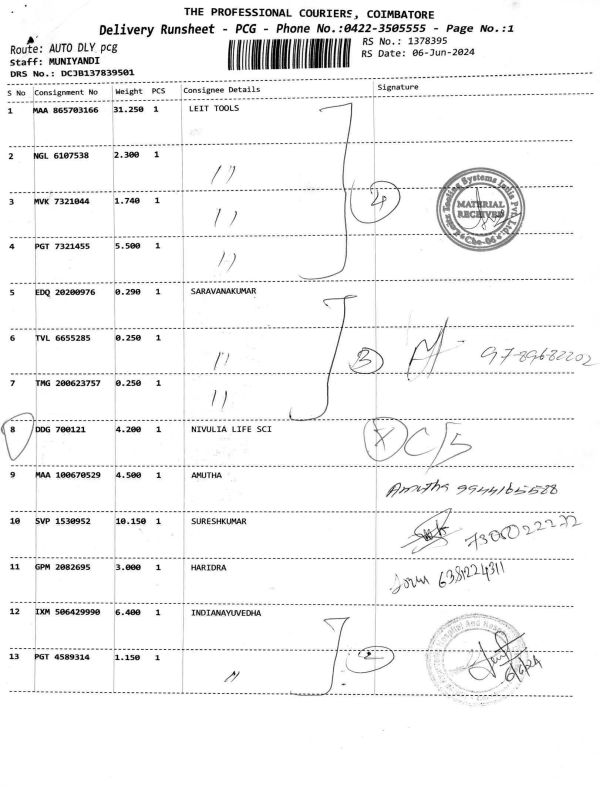 THE PROFESSIONAL COURIERS, COIMBATORE
Delivery Runsheet - PCG - Phone No.:0422-3505555 - Page No.:1
Route: AUTO DLY pcg
RS No.: 1378395
Staff: MUNIYANDI
RS Date: 06-Jun-2024
DRS No.: DCJB137839501
S No Consignment No Weight PCS Consignee Details Signature
1 MAA 865703166 31.250 1 LEIT TOOLS
2 NGL 6107538 2.300 1 〃
3 MVK 7321044 1.740 1 〃 4 MATERIAL RECEIVED
4 PGT 7321455 5.500 1 〃
5 EDQ 20200976 0.290 1 SARAVANAKUMAR
6 TVL 6655285 0.250 1 〃 3
7 TMG 200623757 0.250 1 〃
8 DDG 700121 4.200 1 NIVULIA LIFE SCI C/S
9 MAA 100670529 4.500 1 AMUTHA Amutha 9944165588
10 SVP 1530952 10.150 1 SURESHKUMAR
11 GPM 2082695 3.000 1 HARIDRA 6381224311
12 IXM 506429990 6.400 1 INDIANAYUVEDHA
13 PGT 4589314 1.150 1 〃 2 6/6/24